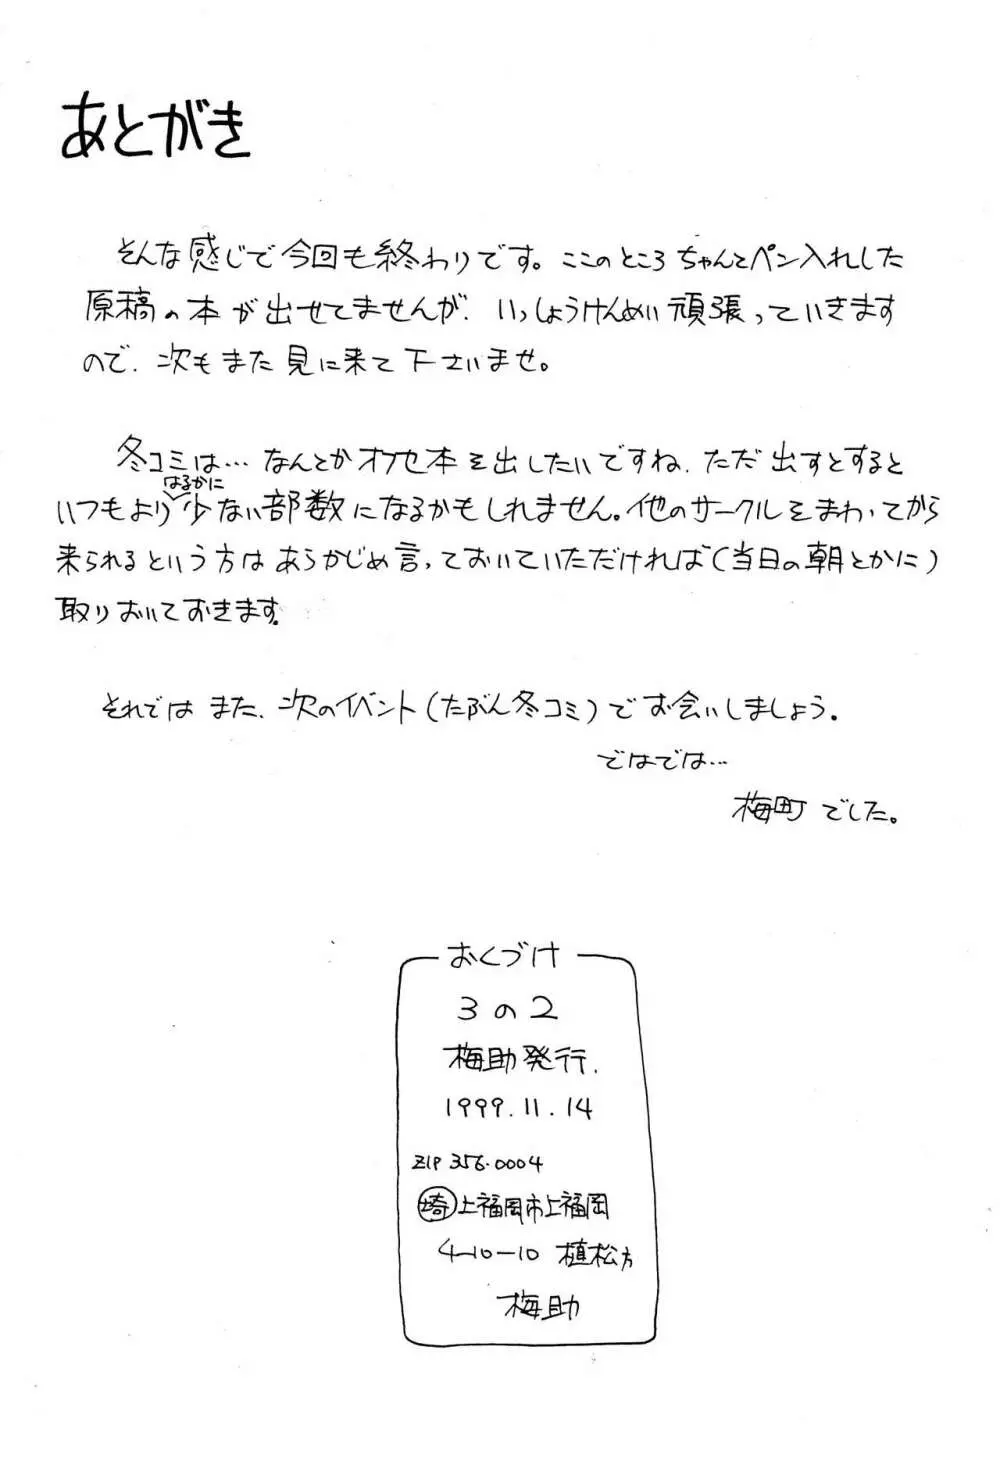 あとがき
そんな感じで今回も終わりです。ここのところちゃんとペン入れした
原稿の本が出せてませんが、いっしょうけんめい頑張っていきます
ので、次もまた見に来て下さいませ。
冬コミは…なんとかオフセ本を出したいですね、ただ出すとすると
はるかに
いつもより少ない部数になるかもしれません。他のサークルをまわってから
来られるという方はあらかじめ言っておいていただければ(当日の朝とかに)
取りおいておきます。
それではまた、次のイベント(たぶん冬コミ)でお会いしましょう。
ではでは…
梅町でした。
おくづけ
3の2
梅助発行.
1999.11.14
ZIP 356.0004
埼上福岡市上福岡
4-10-10 植松方
梅助